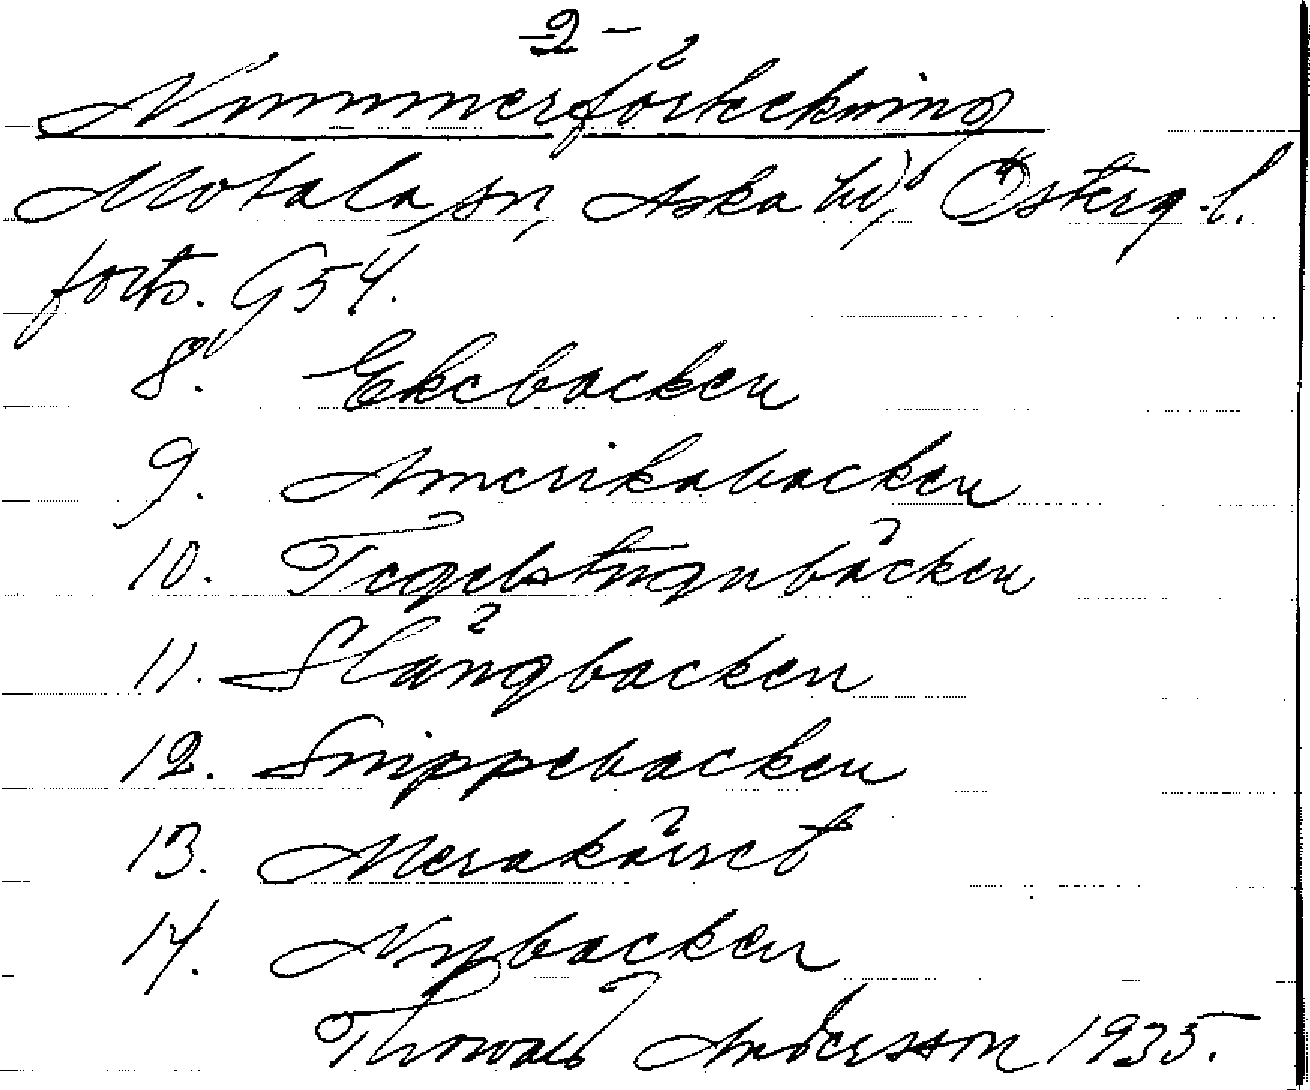 -2-
Nummerförteckning
Motala sn, Aska hd, Österg. l.
forts. G54.
8. Ekebacken
9. Amerikabacken
10. Tegelstugubäcken
11. Slängbacken
12. Snippebacken
13. Merakärret
14. Nybacken
Thorvald Andersson 1935.